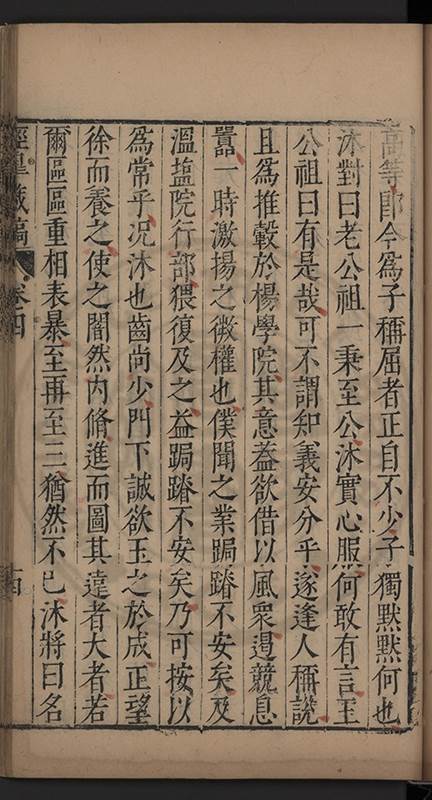 高等郎今為子稱屈者正自不少子獨默默何也
沐對曰老公祖一秉至公沐實心服何敢有言至
公祖曰有是哉可不謂知義安分乎遂逢人稱說
且為推轂於楊學院其意蓋欲借以風衆遏競息
囂一時激揚之微權也僕聞之業跼蹐不安矣及
溫鹽院行部猥復及之益跼蹐不安矣乃可按以
為常乎況沐也齒尚少門下誠欲玉之於成正望
徐而養之使之闇然內脩進而圖其遠者大者若
爾區區重相表暴至再至三猶然不已沐將曰名
藏稿 卷四